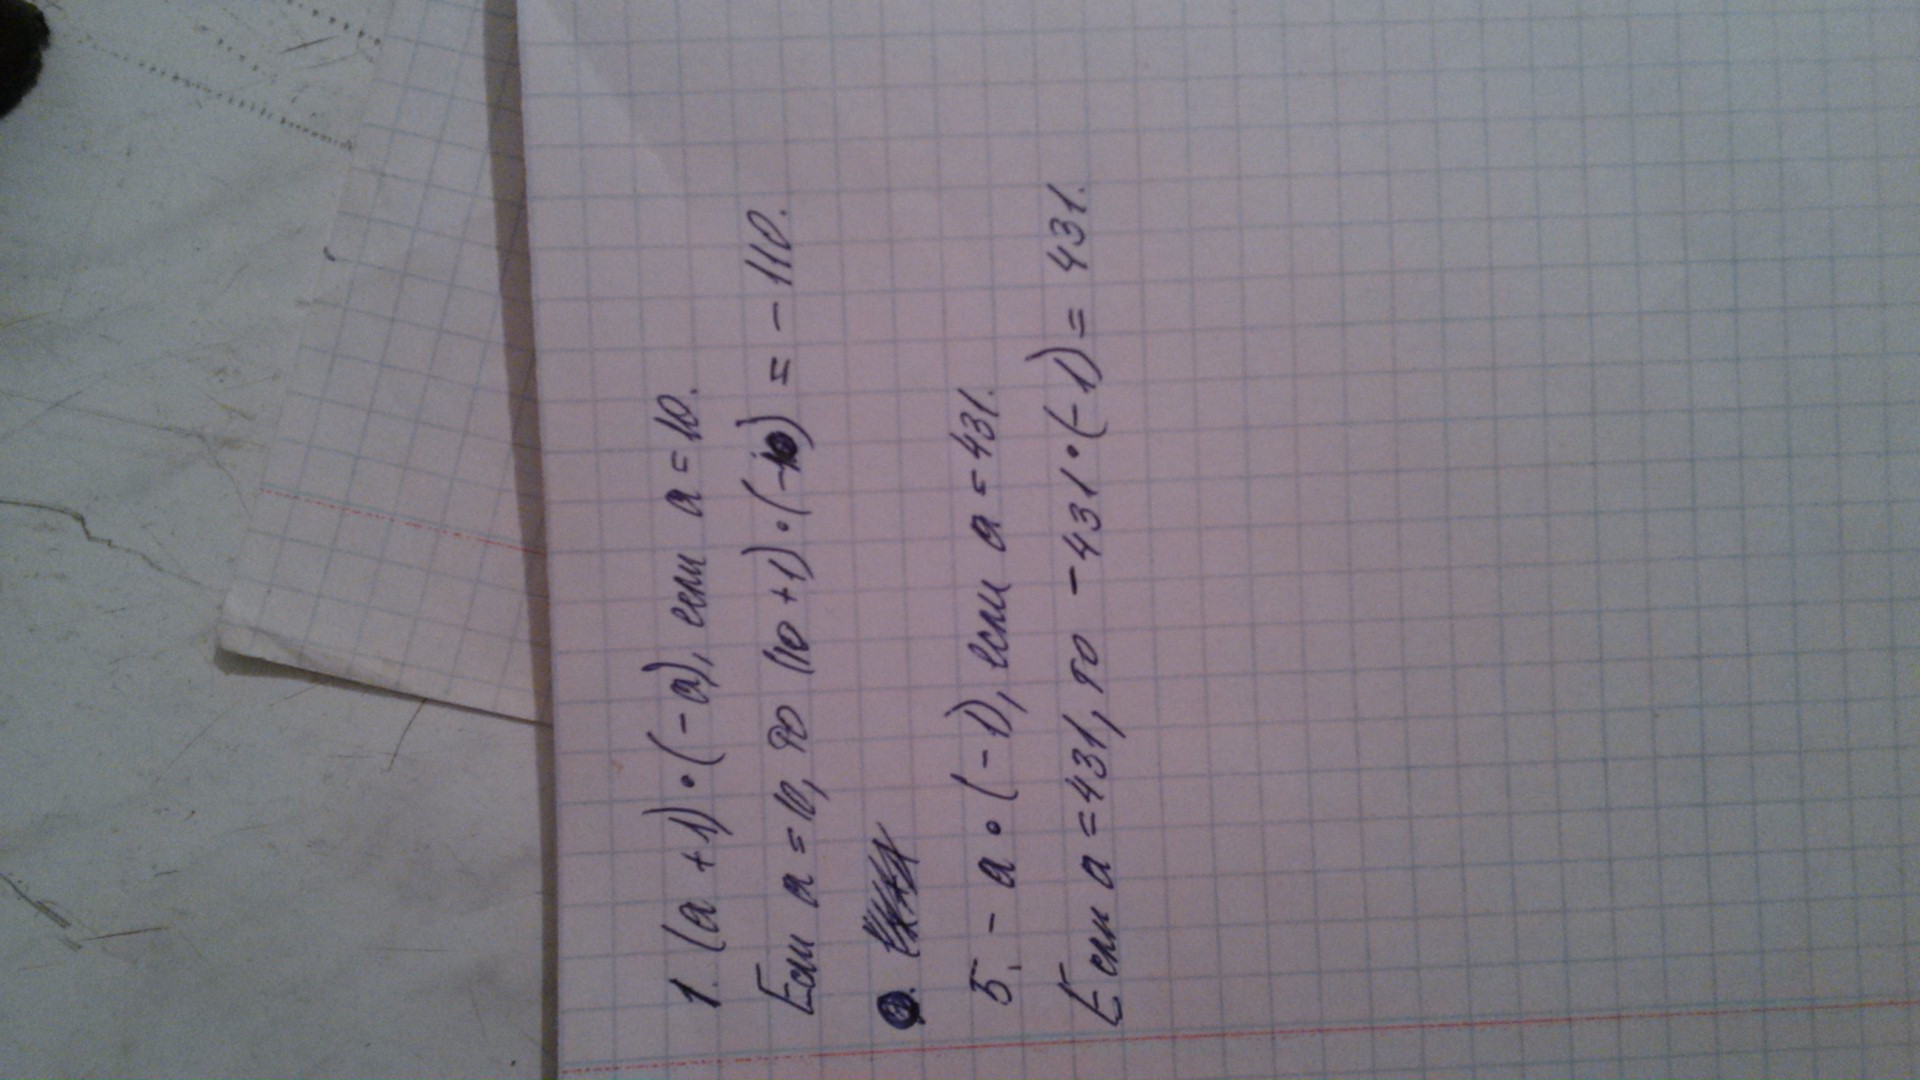 1. (a + 1) • (- a), если a = 10.
Если a = 10, то (10 + 1) • (-10) = - 110.
5. - a • (- 1), если a = 431.
Если a = 431, то - 431 • (- 1) = 431.